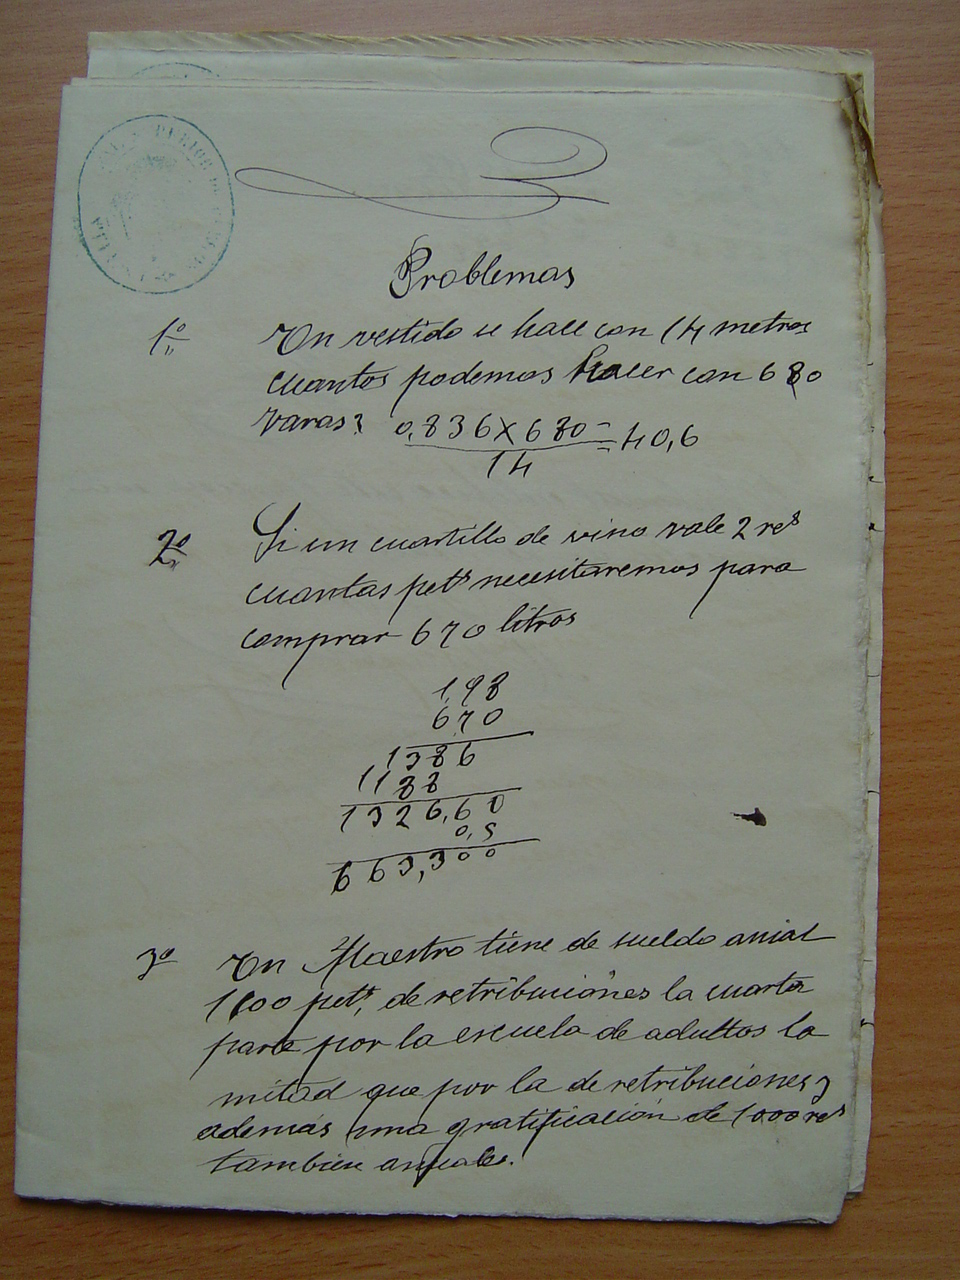 Problemas
1.º Un vestido se hace con 14 metros
cuantos podemos hacer con 680
varas? 0,836 X 680 = 40,6
14
2º Si un cuartillo de vino vale 2 res
cuantas pets necesitaremos para
comprar 670 litros
1,98
670
1386
1188
1326,60
0,5
663,300
3º Un Maestro tiene de sueldo anual
1600 pets, de retribuciones la cuarta
parte por la escuela de adultos la
mitad que por la de retribuciones y
además una gratificación de 1000 res
tambien anuales.